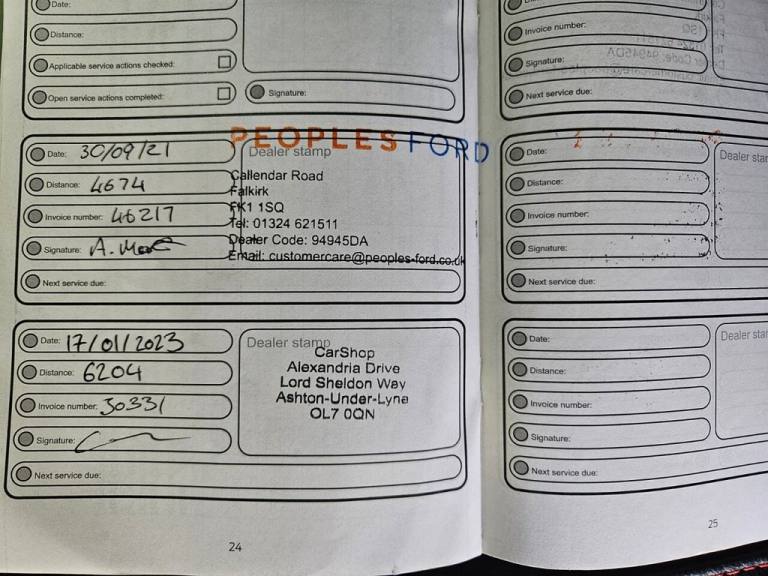 Date:
Distance:
Applicable service actions checked:
Open service actions completed:
Signature:
Date: 30/09/21
Distance: 4674
Invoice number: 46217
Signature:
Next service due:
Dealer stamp
PEOPLES FORD
Callendar Road
Falkirk
FK1 1SQ
Tel: 01324 621511
Dealer Code: 94945DA
Email: customercare@peoples-ford.co.uk
Date: 17/01/2023
Distance: 6204
Invoice number: 30331
Signature:
Next service due:
Dealer stamp
CarShop
Alexandria Drive
Lord Sheldon Way
Ashton-Under-Lyne
OL7 0QN
24
Invoice number:
Signature:
Next service due:
Date:
Distance:
Invoice number:
Signature:
Next service due:
Dealer star
Date:
Distance:
Invoice number:
Signature:
Next service due:
Dealer star
25